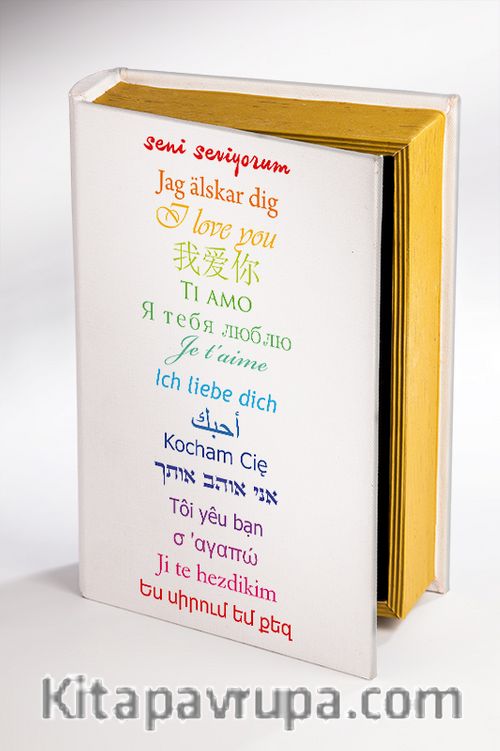 seni seviyorum
Jag älskar dig
I love you
我爱你
Ti amo
Я тебя люблю
Je t'aime
Ich liebe dich
أحبك
Kocham Cię
אני אוהב אותך
Tôi yêu bạn
σ 'αγαπώ
Ji te hezdikim
Ես սիրում եմ քեզ
Kitapavrupa.com